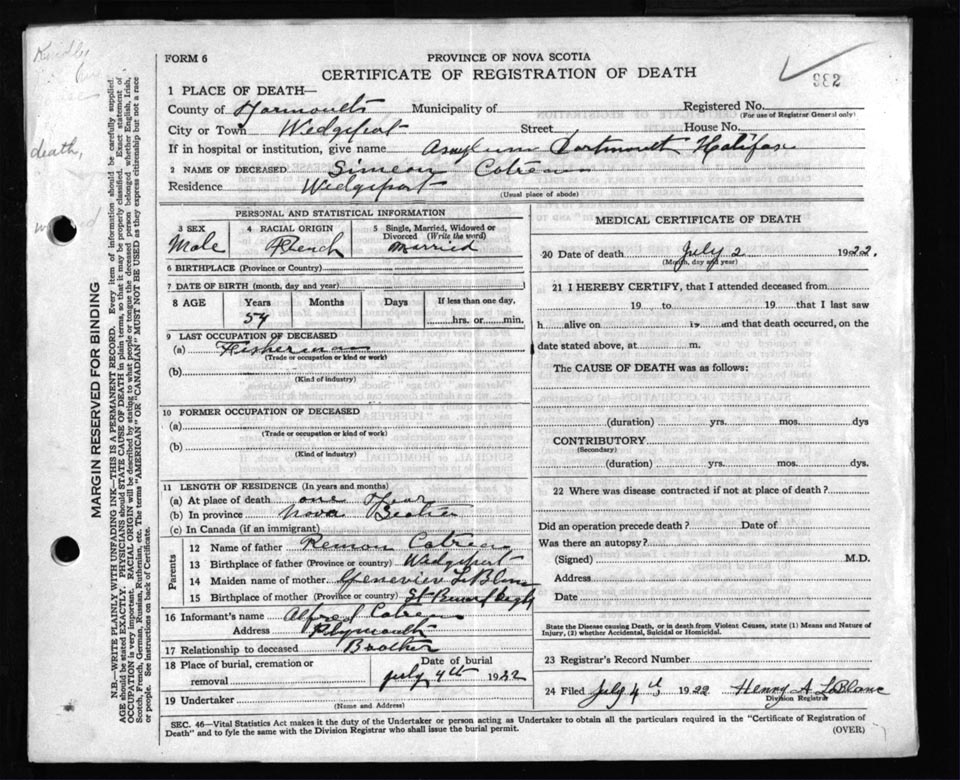 FORM 6
PROVINCE OF NOVA SCOTIA
CERTIFICATE OF REGISTRATION OF DEATH
332
Kindly
death,
1 PLACE OF DEATH—
County of Yarmouth Municipality of Registered No.
(For use of Registrar General only)
City or Town Wedgeport Street House No.
If in hospital or institution, give name Asylum Dartmouth Halifax
2 NAME OF DECEASED Simeon Cotreau
Residence Wedgeport
(Usual place of abode)
PERSONAL AND STATISTICAL INFORMATION
3 SEX
Male
4 RACIAL ORIGIN
French
5 Single, Married, Widowed or
Divorced (Write the word)
Married
6 BIRTHPLACE (Province or Country)
7 DATE OF BIRTH (month, day and year)
8 AGE Years Months Days If less than one day,
54 hrs. or min.
9 LAST OCCUPATION OF DECEASED
(a) Fisherman
(Trade or occupation or kind or work)
(b)
(Kind of industry)
10 FORMER OCCUPATION OF DECEASED
(a)
(Trade or occupation or kind of work)
(b)
(Kind of industry)
11 LENGTH OF RESIDENCE (In years and months)
(a) At place of death one Year
(b) In province Nova Scotia
(c) In Canada (if an immigrant)
Parents
12 Name of father Remon Cotreau
13 Birthplace of father (Province or country) Wedgeport
14 Maiden name of mother Genevieve LeBlanc
15 Birthplace of mother (Province or country) St
16 Informant's name Alfred Cotreau
Address Plymouth
17 Relationship to deceased Brother
18 Place of burial, cremation or
removal
Date of burial
July 4th 1922
19 Undertaker
(Name and Address)
MEDICAL CERTIFICATE OF DEATH
20 Date of death July 2 1922.
(Month, day and year)
21 I HEREBY CERTIFY, that I attended deceased from
19 to 19 that I last saw
h alive on 19 and that death occurred, on the
date stated above, at m.
The CAUSE OF DEATH was as follows:
(duration) yrs. mos. dys
CONTRIBUTORY
(Secondary)
(duration) yrs. mos. dys.
22 Where was disease contracted if not at place of death?
Did an operation precede death? Date of
Was there an autopsy?
(Signed) M.D.
Address
Date
State the Disease causing Death, or in death from Violent Causes, state (1) Means and Nature of
Injury, (2) whether Accidental, Suicidal or Homicidal.
23 Registrar's Record Number
24 Filed July 4th 1922 Henry A LeBlanc
Division Registrar
SEC. 46—Vital Statistics Act makes it the duty of the Undertaker or person acting as Undertaker to obtain all the particulars required in the "Certificate of Registration of
Death" and to fyle the same with the Division Registrar who shall issue the burial permit.
(OVER)
MARGIN RESERVED FOR BINDING
N.B.—WRITE PLAINLY WITH UNFADING INK—THIS IS A PERMANENT RECORD. Every item of information should be carefully supplied.
AGE should be stated EXACTLY. PHYSICIANS should STATE CAUSE OF DEATH in plain terms, so that it may be properly classified. Exact statement of
OCCUPATION is very important. RACIAL ORIGIN will be described by stating to what people or tongue the deceased person belonged whether English, Irish,
Scotch, French, German, Russian, Ruthenian, etc. The terms "AMERICAN" OR "CANADIAN" MUST NOT BE USED as they express citizenship but not a race
or people. See instructions on back of Certificate.